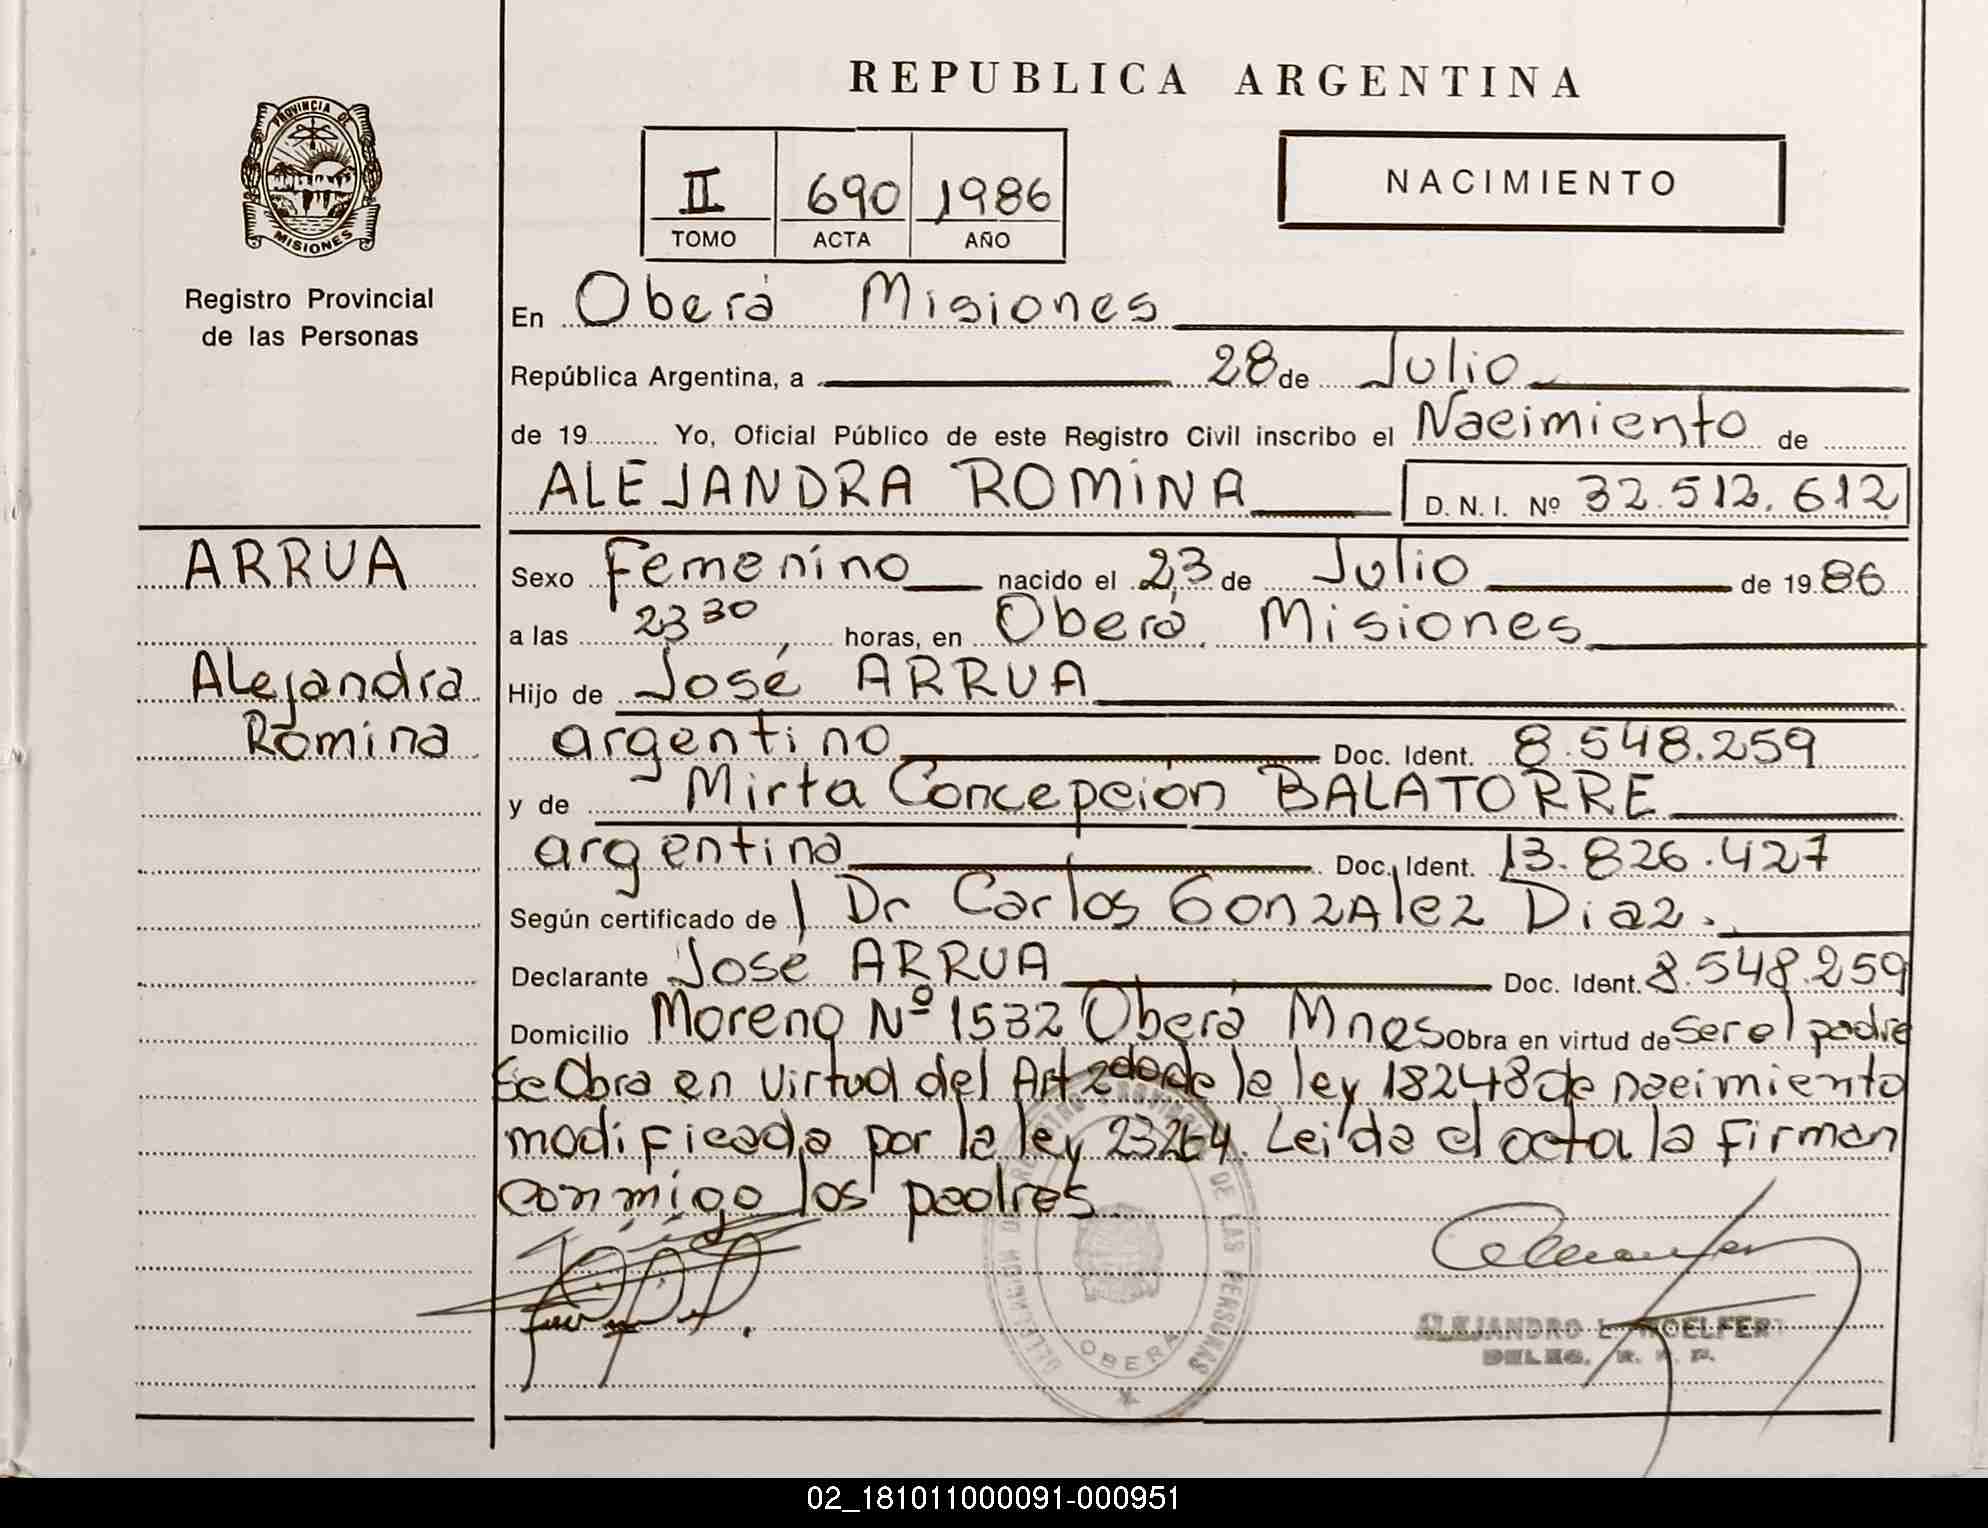 REPUBLICA ARGENTINA
PROVINCIA DE
MISIONES
Registro Provincial
de las Personas
II 690 1986
TOMO ACTA AÑO
NACIMIENTO
En Oberá Misiones
República Argentina, a 28 de Julio
de 19 Yo, Oficial Público de este Registro Civil inscribo el Nacimiento de
ALEJANDRA ROMINA D. N. I. Nº 32.512.612
ARRUA
Alejandra
Romina
Sexo Femenino nacido el 23 de Julio de 1986
a las 23 30 horas, en Oberá Misiones
Hijo de José ARRUA
argentino Doc. Ident. 8.548.259
y de Mirta Concepción BALATORRE
argentina Doc. Ident. 13.826.427
Según certificado de Dr Carlos GonzAlez Diaz.
Declarante José ARRUA Doc. Ident. 8.548.259
Domicilio Moreno Nº 1532 Oberá Mnes Obra en virtud de ser el padre
Se Obra en virtud del Art 2do de la ley 18248 de nacimiento
modificada por la ley 23264. Leida el acta la firman
conmigo los padres
REGISTRO PROVINCIAL DE LAS PERSONAS
OBERA
ALEJANDRO L. WOELFERT
DELEG. R. P. P.
02_181011000091-000951